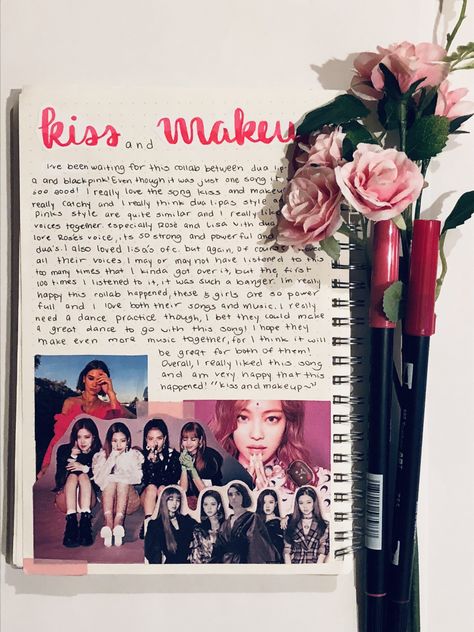 kiss and Makeu
I've been waiting for this collab between dua lip
a and blackpink! Even though it was just one song it
soo good! I really love the song kiss and makeu
really catchy and I really think dua lipas style a
Pinks style are quite similar and I really like
voices together. especially Rosé and Lisa with dua
love Rosés voice, its so strong and powerful and
dua's. I also loved lisa's ofc. but again, Of course I
all their voices I may or may not have listened to this
to many times that I kinda got over it, but the first
100 times I listened to it, it was such a banger. I'm really
happy this collab happened, these 5 girls are so power
full and I love both their songs and music. I really
need a dance practice though, I bet they could make
a great dance to go with this song! I hope they
make even more music together, for I think it will
be great for both of them!
Overall, I really liked this song
and am very happy that this
happened! "kiss and makeup~"